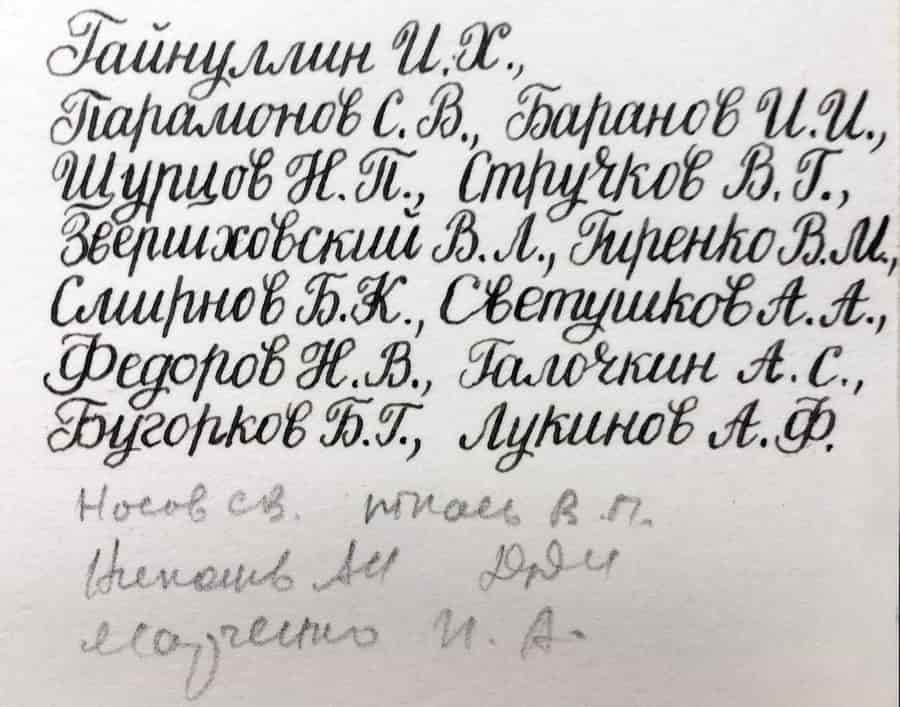 Гайнуллин И.Х.,
Парамонов С.В., Баранов И.И.,
Шурцов Н.П., Стручков В.Г.,
Звершховский В.Л., Гиренко В.М.,
Смирнов Б.К., Светушков А.А.,
Федоров Н.В., Галочкин А.С.,
Бугорков Б.Г., Лукинов А.Ф.
Носов СВ. В.П.
АИ
И. А.